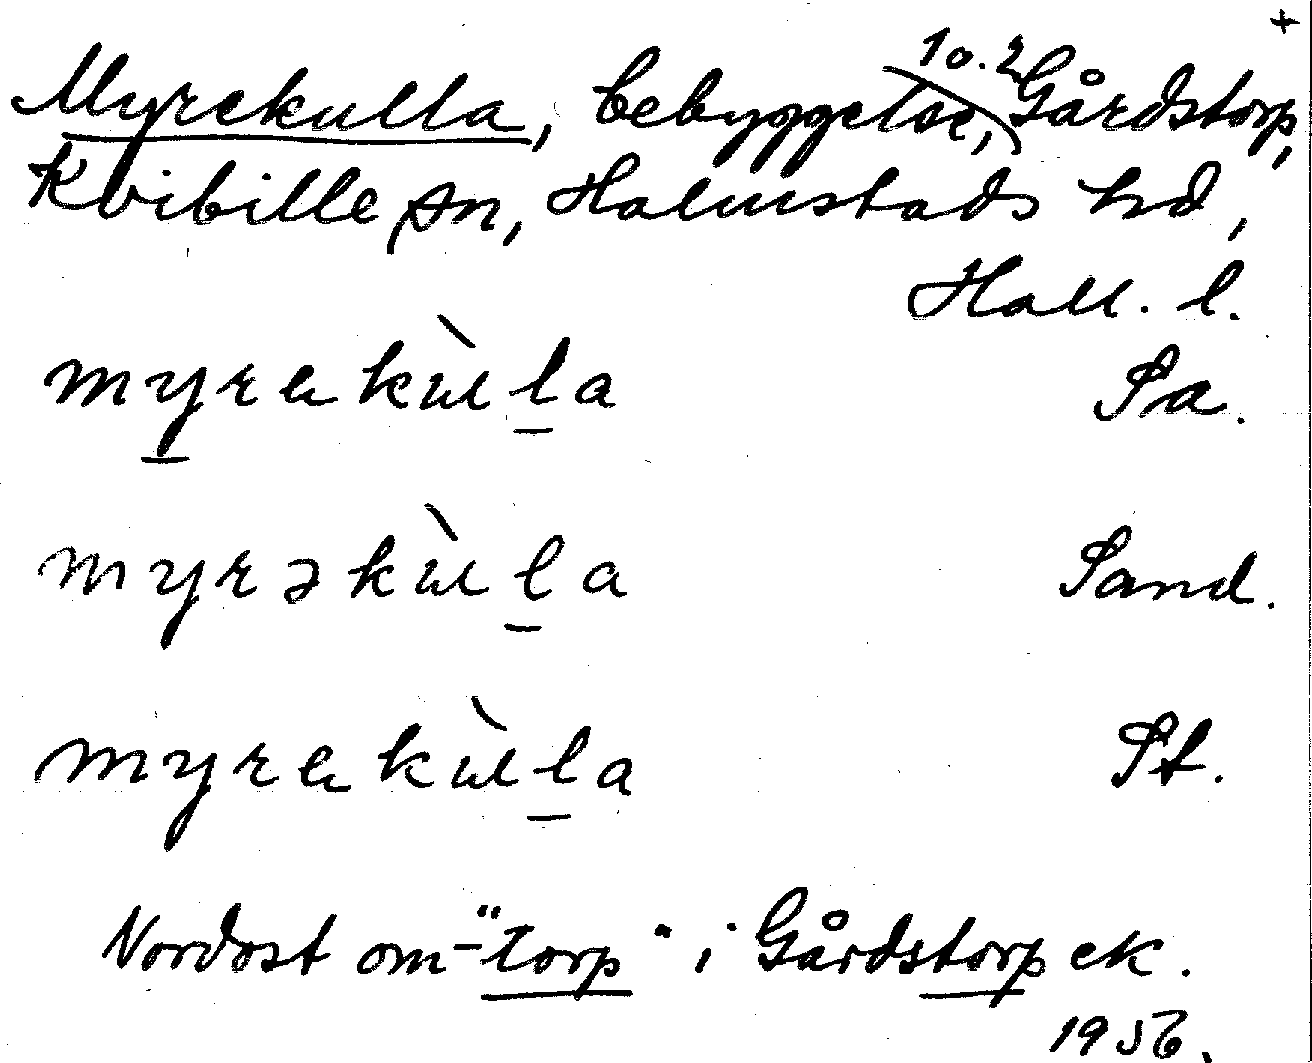 +
10.2
Myrekulla, bebyggelse, Gårdstorp,
Kvibille sn, Halmstads hd,
Hall. l.
myrekùla Sa.
myrəkùla Sand.
myrekùla St.
Nordost om -"torp" i Gårdstorp ek.
1956.